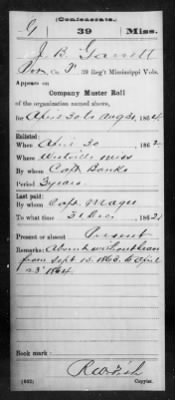 (Confederate.)
G 39 Miss.
J. B. Garrett
Pvt, Co. F, 39 Reg't Mississippi Vols.
Appears on
Company Muster Roll
of the organization named above,
for April 30 to Aug 31, 1864
Enlisted:
When April 30, 1862
Where Westville Miss
By whom Capt Banks
Period 3 years
Last paid:
By whom Capt. Magee
To what time 31 Dec, 1862
Present or absent Present
Remarks: Absent without leave
from Sept 15. 1863. to April
23" 1864.
Book mark:
(642)
Copyist.